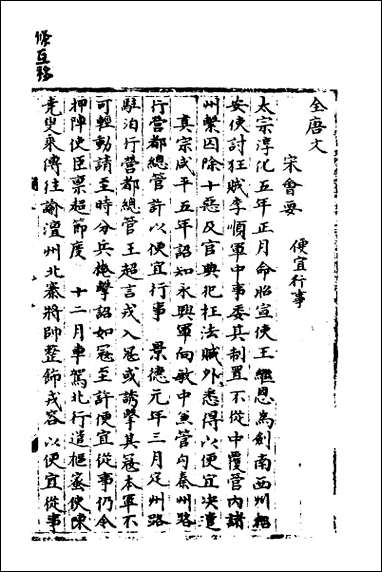 全唐文
宋會要
便宜行事
太宗淳化五年正月命昭宣使王繼恩為劍南西川招
安使討狂賊李順軍中事委其制置不從中覆管內諸
州繫囚除十惡及官典犯枉法贓外悉得以便宜決遣
真宗咸平五年詔知永興軍向敏中兼管勾秦州路
行營都總管許以便宜行事 景德元年三月定州路
駐泊行營都總管王超言戎入寇或誘擊其寇本軍不
可輕動請至時分兵掩擊詔如寇至許便宜從事仍令
押陣使臣稟超節度 十二月車駕北行遣樞密使陳
堯叟乘傳往諭澶州北寨將帥整飾戎容以便宜從事